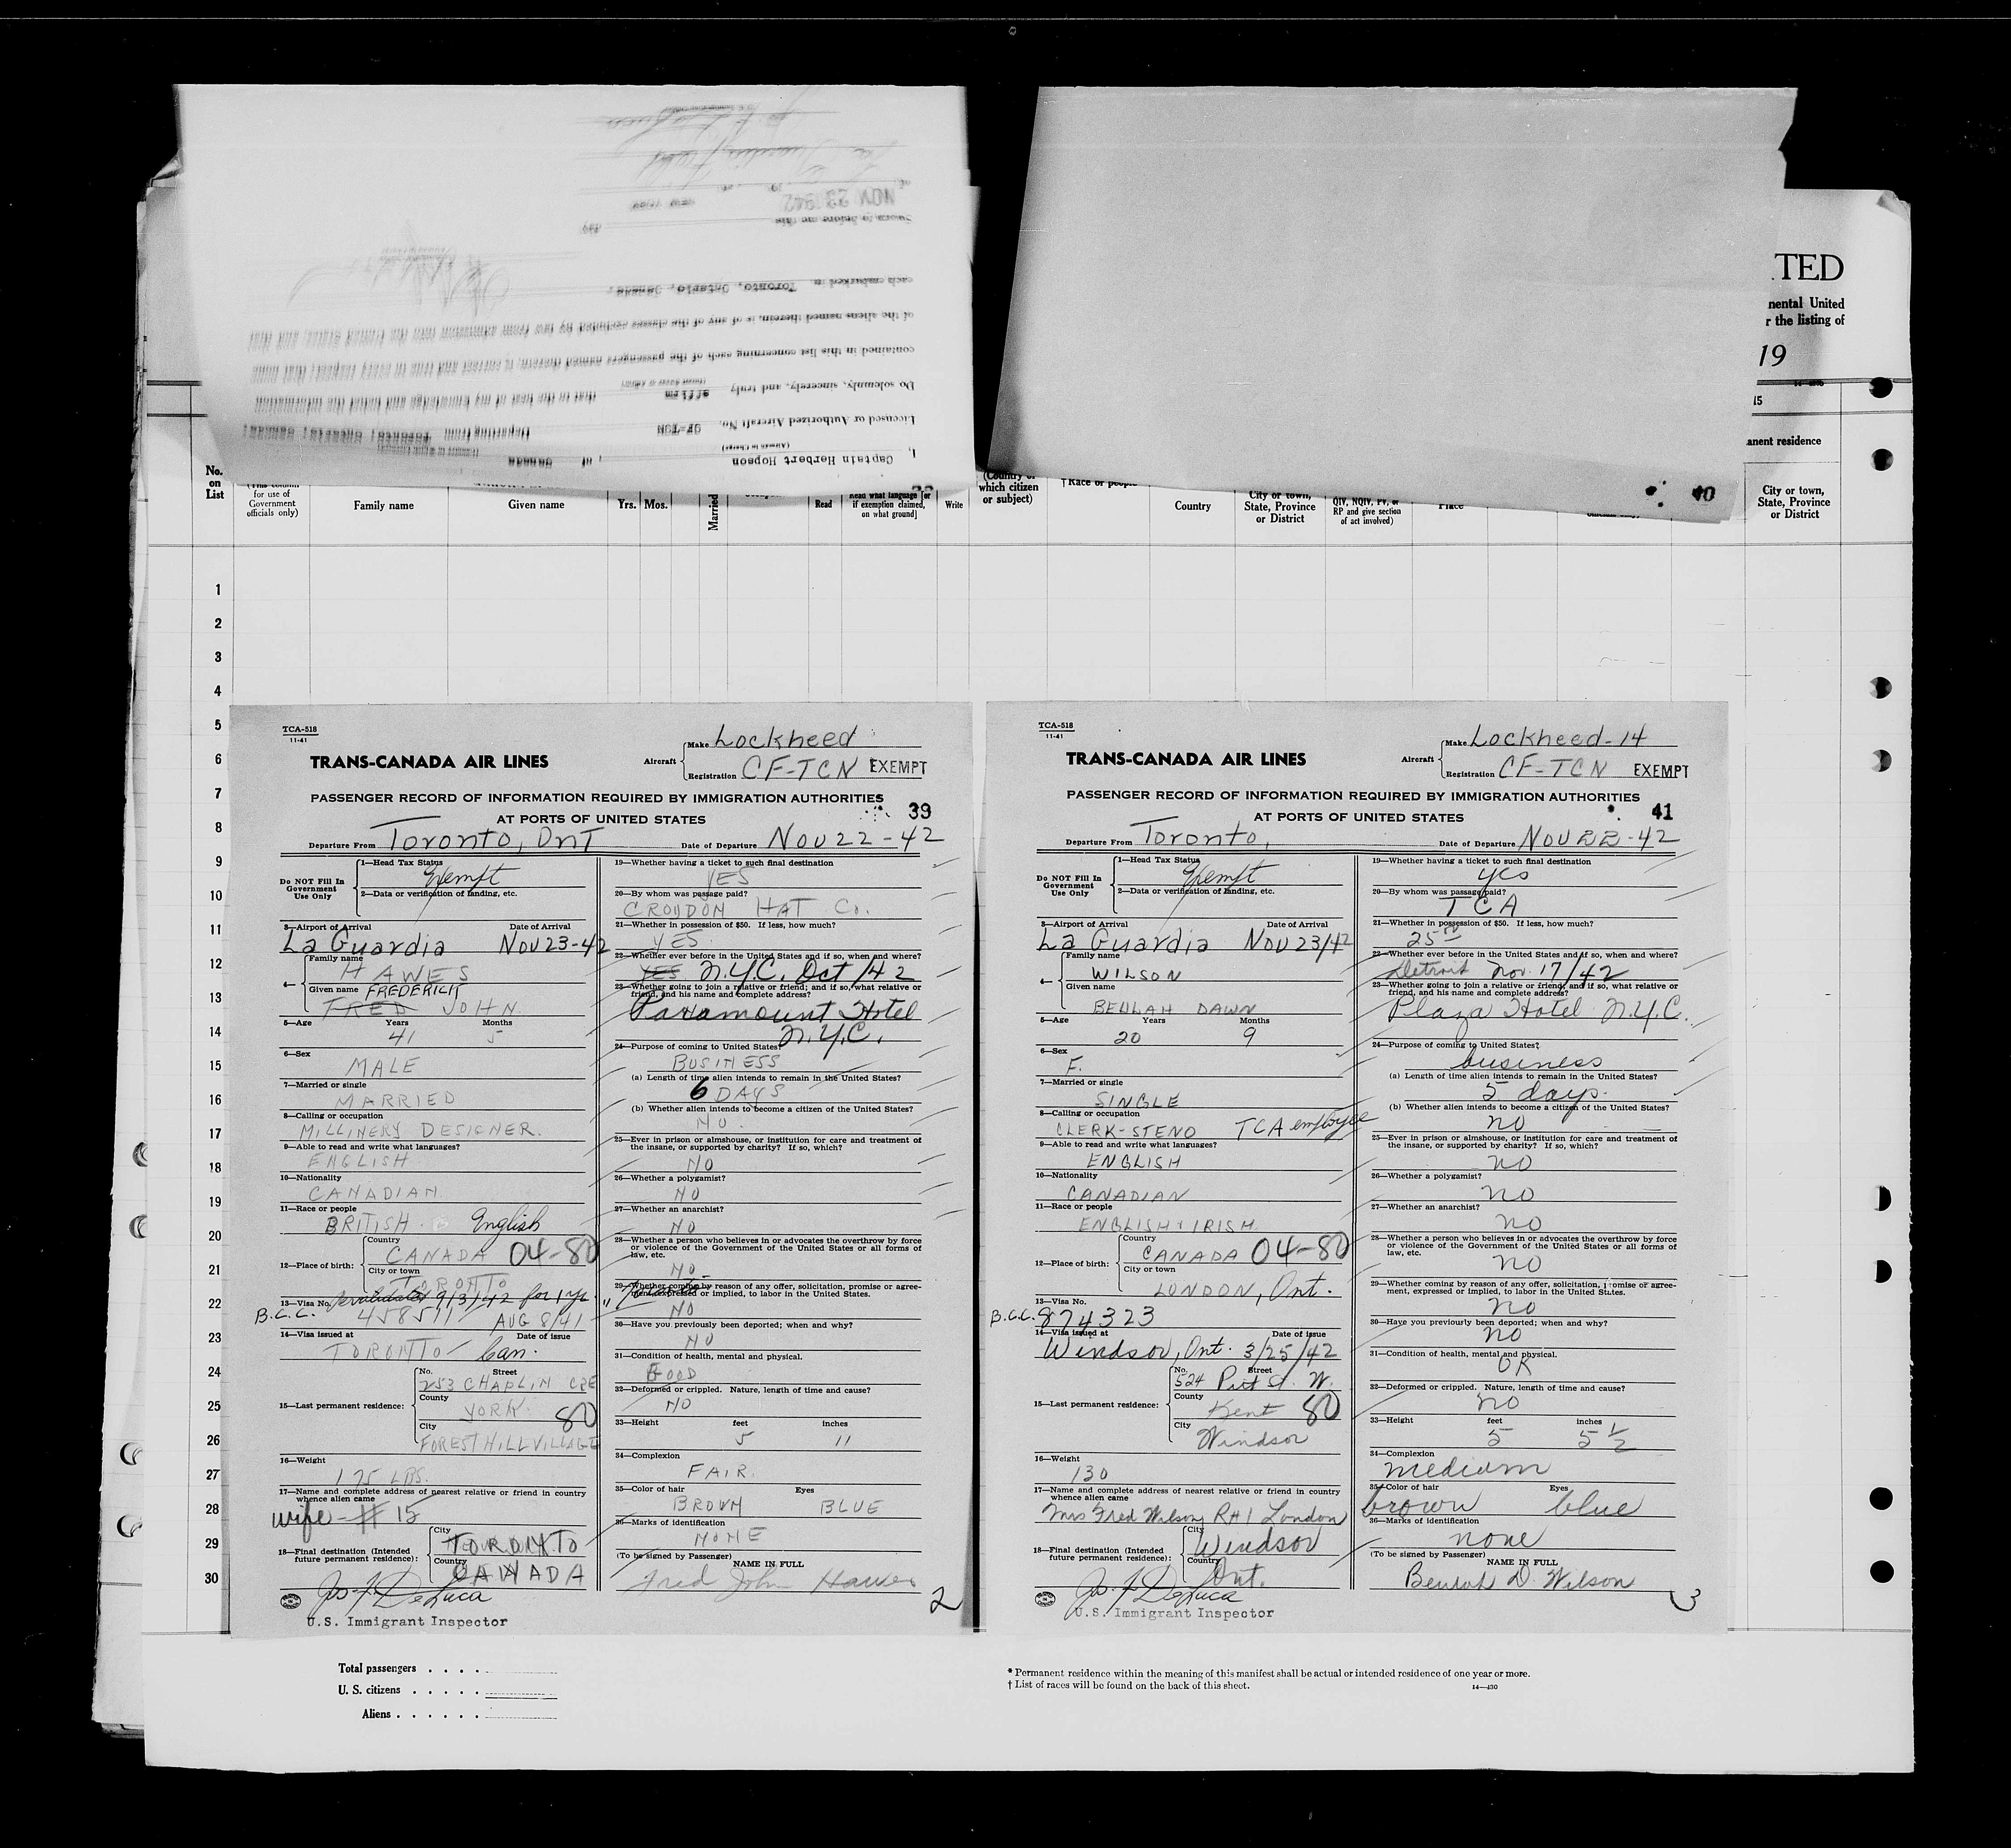 I, Captain Herbert Hopson, of Canada
(Airman in Charge)
Licensed or Authorized Aircraft No. CF-TCN Departing from Toronto, Ontario, Canada,
Do solemnly, sincerely, and truly affirm that to the best of my knowledge and belief the information
contained in this list concerning each of the passengers named therein, is correct and true in every respect; that none
of the aliens named therein, is of any of the classes excluded by law from admission into the United States, and that
each embarked in Toronto, Ontario, Canada.
Sworn to before me this
NOV 23 1942
NEW YORK
TED
nental United
r the listing of
19
15
anent residence
40
No. on List
for use of Government officials only)
Family name
Given name
Yrs. Mos.
Married
Read
Read what language [or if exemption claimed, on what ground]
Write
(Country of which citizen or subject)
†Race or people
Country
City or town, State, Province or District
QIV, NQIV, PV, or RP and give section of act involved)
Place
City or town, State, Province or District
1
2
3
4
5
6
7
8
9
10
11
12
13
14
15
16
17
18
19
20
21
22
23
24
25
26
27
28
29
30
TCA-518
11-41
TRANS-CANADA AIR LINES
Aircraft
Make Lockheed
Registration CF-TCN EXEMPT
PASSENGER RECORD OF INFORMATION REQUIRED BY IMMIGRATION AUTHORITIES
AT PORTS OF UNITED STATES
39
Departure From Toronto, Ont Date of Departure Nov 22-42
Do NOT Fill In Government Use Only
1—Head Tax Status
Exempt
2—Data or verification of landing, etc.
3—Airport of Arrival Date of Arrival
La Guardia Nov 23-42
4—
Family name
HAWES
Given name FREDERICK
FRED JOHN
5—Age Years Months
41 5
6—Sex
MALE
7—Married or single
MARRIED
8—Calling or occupation
MILLINERY DESIGNER.
9—Able to read and write what languages?
ENGLISH
10—Nationality
CANADIAN
11—Race or people
BRITISH. English
12—Place of birth:
Country
CANADA 04-80
City or town
TORONTO
13—Visa No. revalidated 9/3/42 for 1 yr.
B.C.C. 458511 AUG 8/41
14—Visa issued at Date of issue
TORONTO - Can.
15—Last permanent residence:
No. Street
253 CHAPLIN CRE
County
YORK. 80
City
FOREST HILL VILLAGE
16—Weight
175 LBS.
17—Name and complete address of nearest relative or friend in country whence alien came
wife - # 15
18—Final destination (Intended future permanent residence):
City
TORONTO
Country
CANADA
Jos. F. DeLuca
U.S. Immigrant Inspector
19—Whether having a ticket to such final destination
YES
20—By whom was passage paid?
CROYDON HAT Co.
21—Whether in possession of $50. If less, how much?
YES
22—Whether ever before in the United States and if so, when and where?
YES N.Y.C. Oct/42
23—Whether going to join a relative or friend; and if so, what relative or friend, and his name and complete address?
Paramount Hotel
N.Y.C.
24—Purpose of coming to United States?
BUSINESS
(a) Length of time alien intends to remain in the United States?
6 DAYS
(b) Whether alien intends to become a citizen of the United States?
NO.
25—Ever in prison or almshouse, or institution for care and treatment of the insane, or supported by charity? If so, which?
NO
26—Whether a polygamist?
NO
27—Whether an anarchist?
NO
28—Whether a person who believes in or advocates the overthrow by force or violence of the Government of the United States or all forms of law, etc.
NO
29—Whether coming by reason of any offer, solicitation, promise or agreement, expressed or implied, to labor in the United States.
NO
30—Have you previously been deported; when and why?
NO
31—Condition of health, mental and physical.
GOOD
32—Deformed or crippled. Nature, length of time and cause?
NO
33—Height feet inches
5 11
34—Complexion
FAIR.
35—Color of hair Eyes
BROWN BLUE
36—Marks of identification
NONE
(To be signed by Passenger)
NAME IN FULL
Fred John Hawes
2
TCA-518
11-41
TRANS-CANADA AIR LINES
Aircraft
Make Lockheed-14
Registration CF-TCN EXEMPT
PASSENGER RECORD OF INFORMATION REQUIRED BY IMMIGRATION AUTHORITIES
AT PORTS OF UNITED STATES
41
Departure From Toronto, Date of Departure Nov 22-42
Do NOT Fill In Government Use Only
1—Head Tax Status
Exempt
2—Data or verification of landing, etc.
3—Airport of Arrival Date of Arrival
La Guardia Nov 23/42
4—
Family name
WILSON
Given name
BEULAH DAWN
5—Age Years Months
20 9
6—Sex
F.
7—Married or single
SINGLE
8—Calling or occupation
CLERK-STENO TCA employee
9—Able to read and write what languages?
ENGLISH
10—Nationality
CANADIAN
11—Race or people
ENGLISH & IRISH.
12—Place of birth:
Country
CANADA 04-80
City or town
LONDON, Ont.
13—Visa No.
B.C.C. 874323
14—Visa issued at Date of issue
Windsor, Ont. 3/25/42
15—Last permanent residence:
No. Street
524 Pitt St. W.
County
Kent 80
City
Windsor
16—Weight
130
17—Name and complete address of nearest relative or friend in country whence alien came
Mrs Fred Wilson, RH1 London
18—Final destination (Intended future permanent residence):
City
Windsor
Country
Ont.
Jos. F. DeLuca
U.S. Immigrant Inspector
19—Whether having a ticket to such final destination
yes
20—By whom was passage paid?
TCA
21—Whether in possession of $50. If less, how much?
25
22—Whether ever before in the United States and if so, when and where?
Detroit Nov. 17/42
23—Whether going to join a relative or friend; and if so, what relative or friend, and his name and complete address?
Plaza Hotel N.Y.C.
24—Purpose of coming to United States?
business
(a) Length of time alien intends to remain in the United States?
5 days.
(b) Whether alien intends to become a citizen of the United States?
no
25—Ever in prison or almshouse, or institution for care and treatment of the insane, or supported by charity? If so, which?
no
26—Whether a polygamist?
no
27—Whether an anarchist?
no
28—Whether a person who believes in or advocates the overthrow by force or violence of the Government of the United States or all forms of law, etc.
no
29—Whether coming by reason of any offer, solicitation, promise or agreement, expressed or implied, to labor in the United States.
no
30—Have you previously been deported; when and why?
no
31—Condition of health, mental and physical.
OK
32—Deformed or crippled. Nature, length of time and cause?
no
33—Height feet inches
5 5 1/2
34—Complexion
medium
35—Color of hair Eyes
brown blue
36—Marks of identification
none
(To be signed by Passenger)
NAME IN FULL
Beulah D. Wilson
3
Total passengers . . . .
U. S. citizens . . . . .
Aliens . . . . . .
* Permanent residence within the meaning of this manifest shall be actual or intended residence of one year or more.
† List of races will be found on the back of this sheet. 14—430